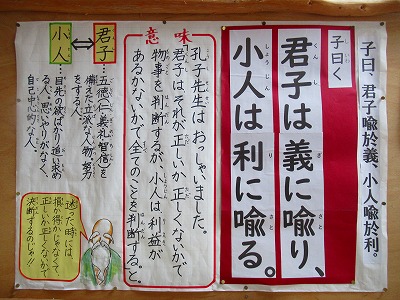 子曰、君子喩於義、小人喩於利。
子曰く
君子は義に喩り、
くんし ぎ さと
小人は利に喩る。
しょうじん り さと
意味
孔子先生はおっしゃいました。
「君子はそれが正しいか正しくないかで
物事を判断するが、小人は利益が
あるかないかで全てのことを判断する」と。
君子…五徳(仁義礼智信)を
備えた立派な人物。努力
をする人。
⇔
小人…目先の欲ばかり追い求め
る人。思いやりがなく、
自己中心的な人。
迷った時には、
損か得かじゃなくて、
正しいか正しくないかで
決断するのじゃ!!